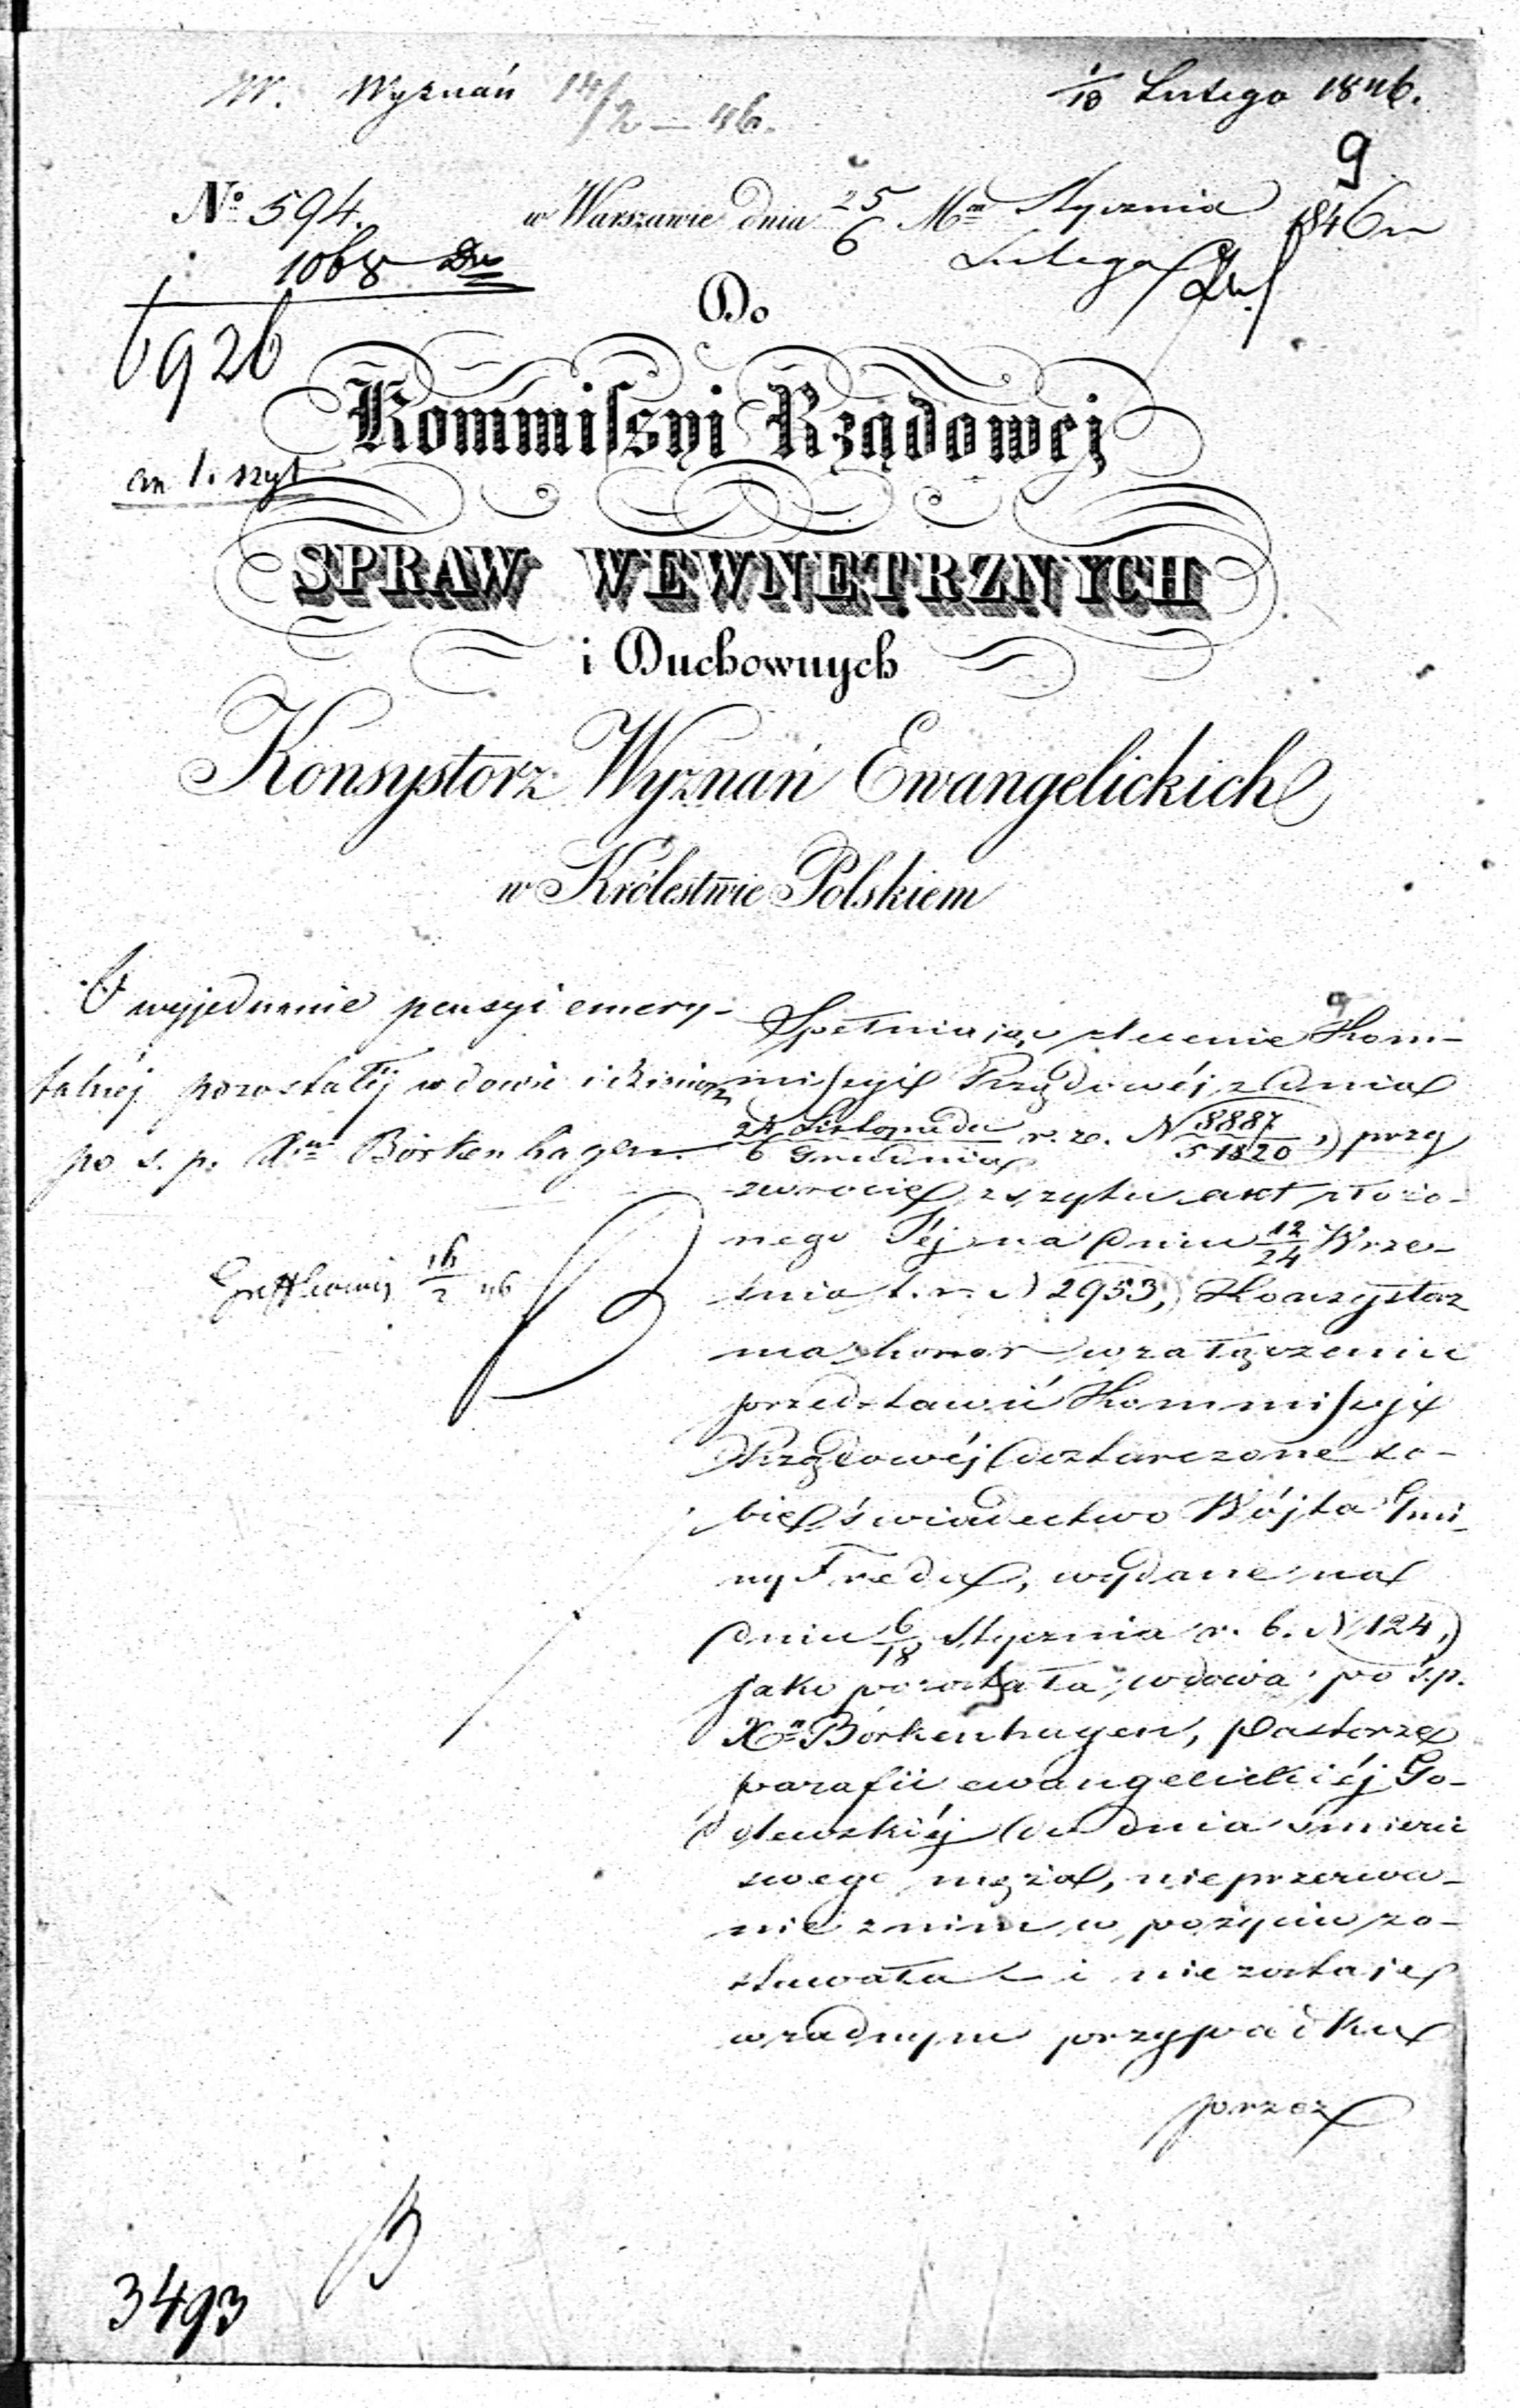 W. Wyznań 14/2 — 46.
1/10 Lutego 1846.
9
No 594. w Warszawie dnia 25/6 Mca Stycznia/Lutego 1846 r.
1068
6926
Do
Kommiſsyi Rządowej
an 1. szyt
SPRAW WEWNĘTRZNYCH
i Duchownych
Konsystorz Wyznań Ewangelickich
w Królestwie Polskiem
O wyjednanie pensyi emery-
talnéj pozostałéj wdowie i dzieciom
po s. p. Xu Börkenhagen.
16/2 46
Spełniając zlecenie Kom-
miſsyi Rządowéj z dnia
24 Listopada/6 Grudnia r. z. N 8887/51820, przy
zwrocie zszytu akt złożo-
nego Téj na dniu 12/24 Wrze-
śnia t. r. N 2953, Konsystorz
ma honor w załączeniu
przedstawić Kommiſsyi
Rządowéj dostarczone so-
bie świadectwo Wójta Gmi-
ny Freda, wydane na
dniu 6/18 Stycznia r. b. N 124,
jako pozostała wdowa po ś. p.
Xu Börkenhagen, Pastorze
parafii ewangelickiéj Go-
dlewskiéj do dnia śmierci
swego męża, nieprzerwa-
nie z nim w pożyciu zo-
stawała i nie zostaje
w żadnym przypadku
przez
3493